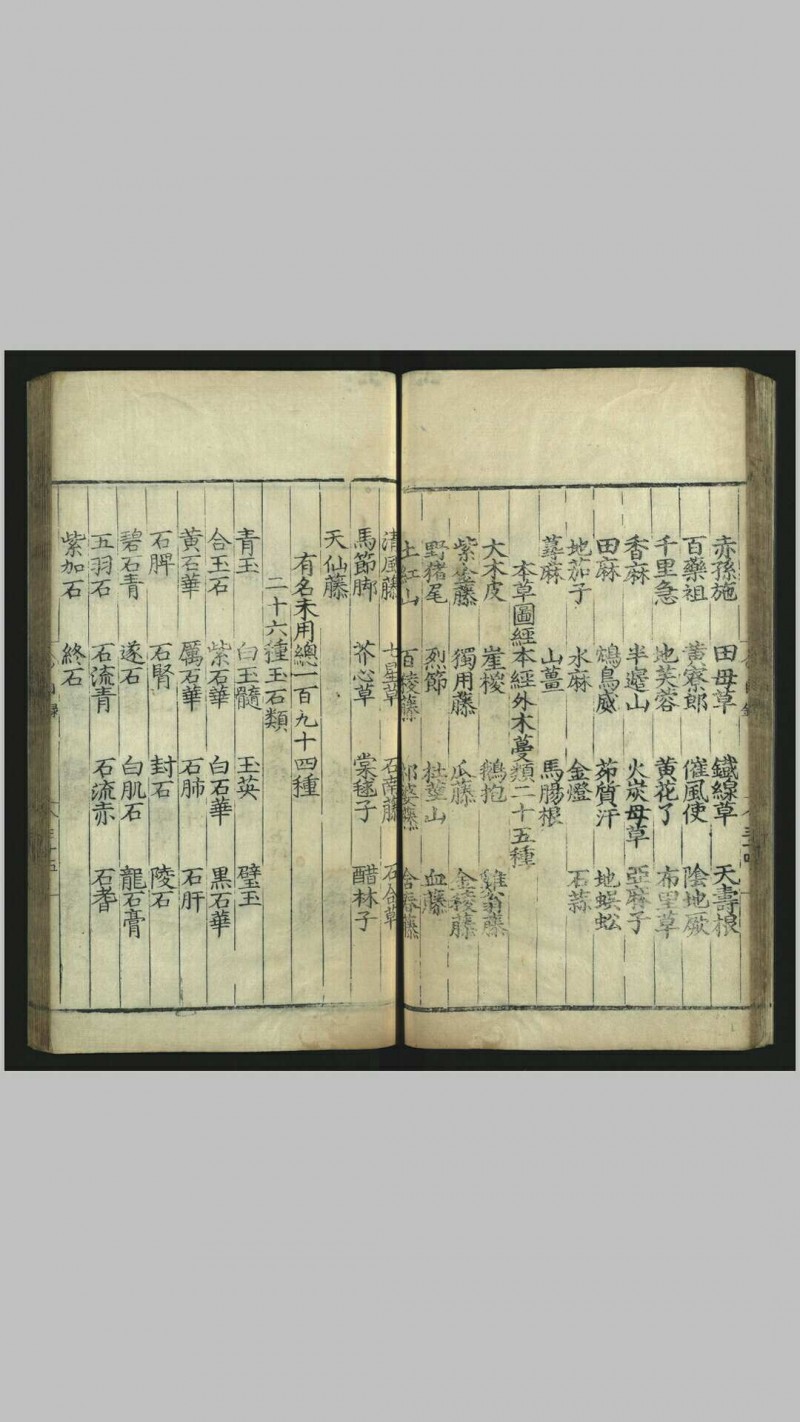 赤孫施 田母草 鐵線草 天壽根
百藥祖 黃寮郎 催風使 陰地厥
千里急 地芙蓉 黃花了 布里草
香麻 半邊山 火炭母草 亞麻子
田麻 鴆鳥威 茆質汗 地蜈蚣
地茄子 水麻 金燈 石蒜
蕁麻 山薑 馬腸根
本草圖經本經外木蔓類二十五種
大木皮 崖椶 鵝抱 雞翁藤
紫金藤 獨用藤 瓜藤 金稜藤
野猪尾 烈節 杜莖山 血藤
土紅山 百稜藤 祁婆藤 含春藤
清風藤 七星草 石南藤 石合草
馬節脚 芥心草 棠毬子 醋林子
天仙藤
有名未用總一百九十四種
二十六種玉石類
青玉 白玉髓 玉英 璧玉
合玉石 紫石華 白石華 黑石華
黃石華 厲石華 石肺 石肝
石脾 石腎 封石 陵石
碧石青 遂石 白肌石 龍石膏
五羽石 石流青 石流赤 石耆
紫加石 終石